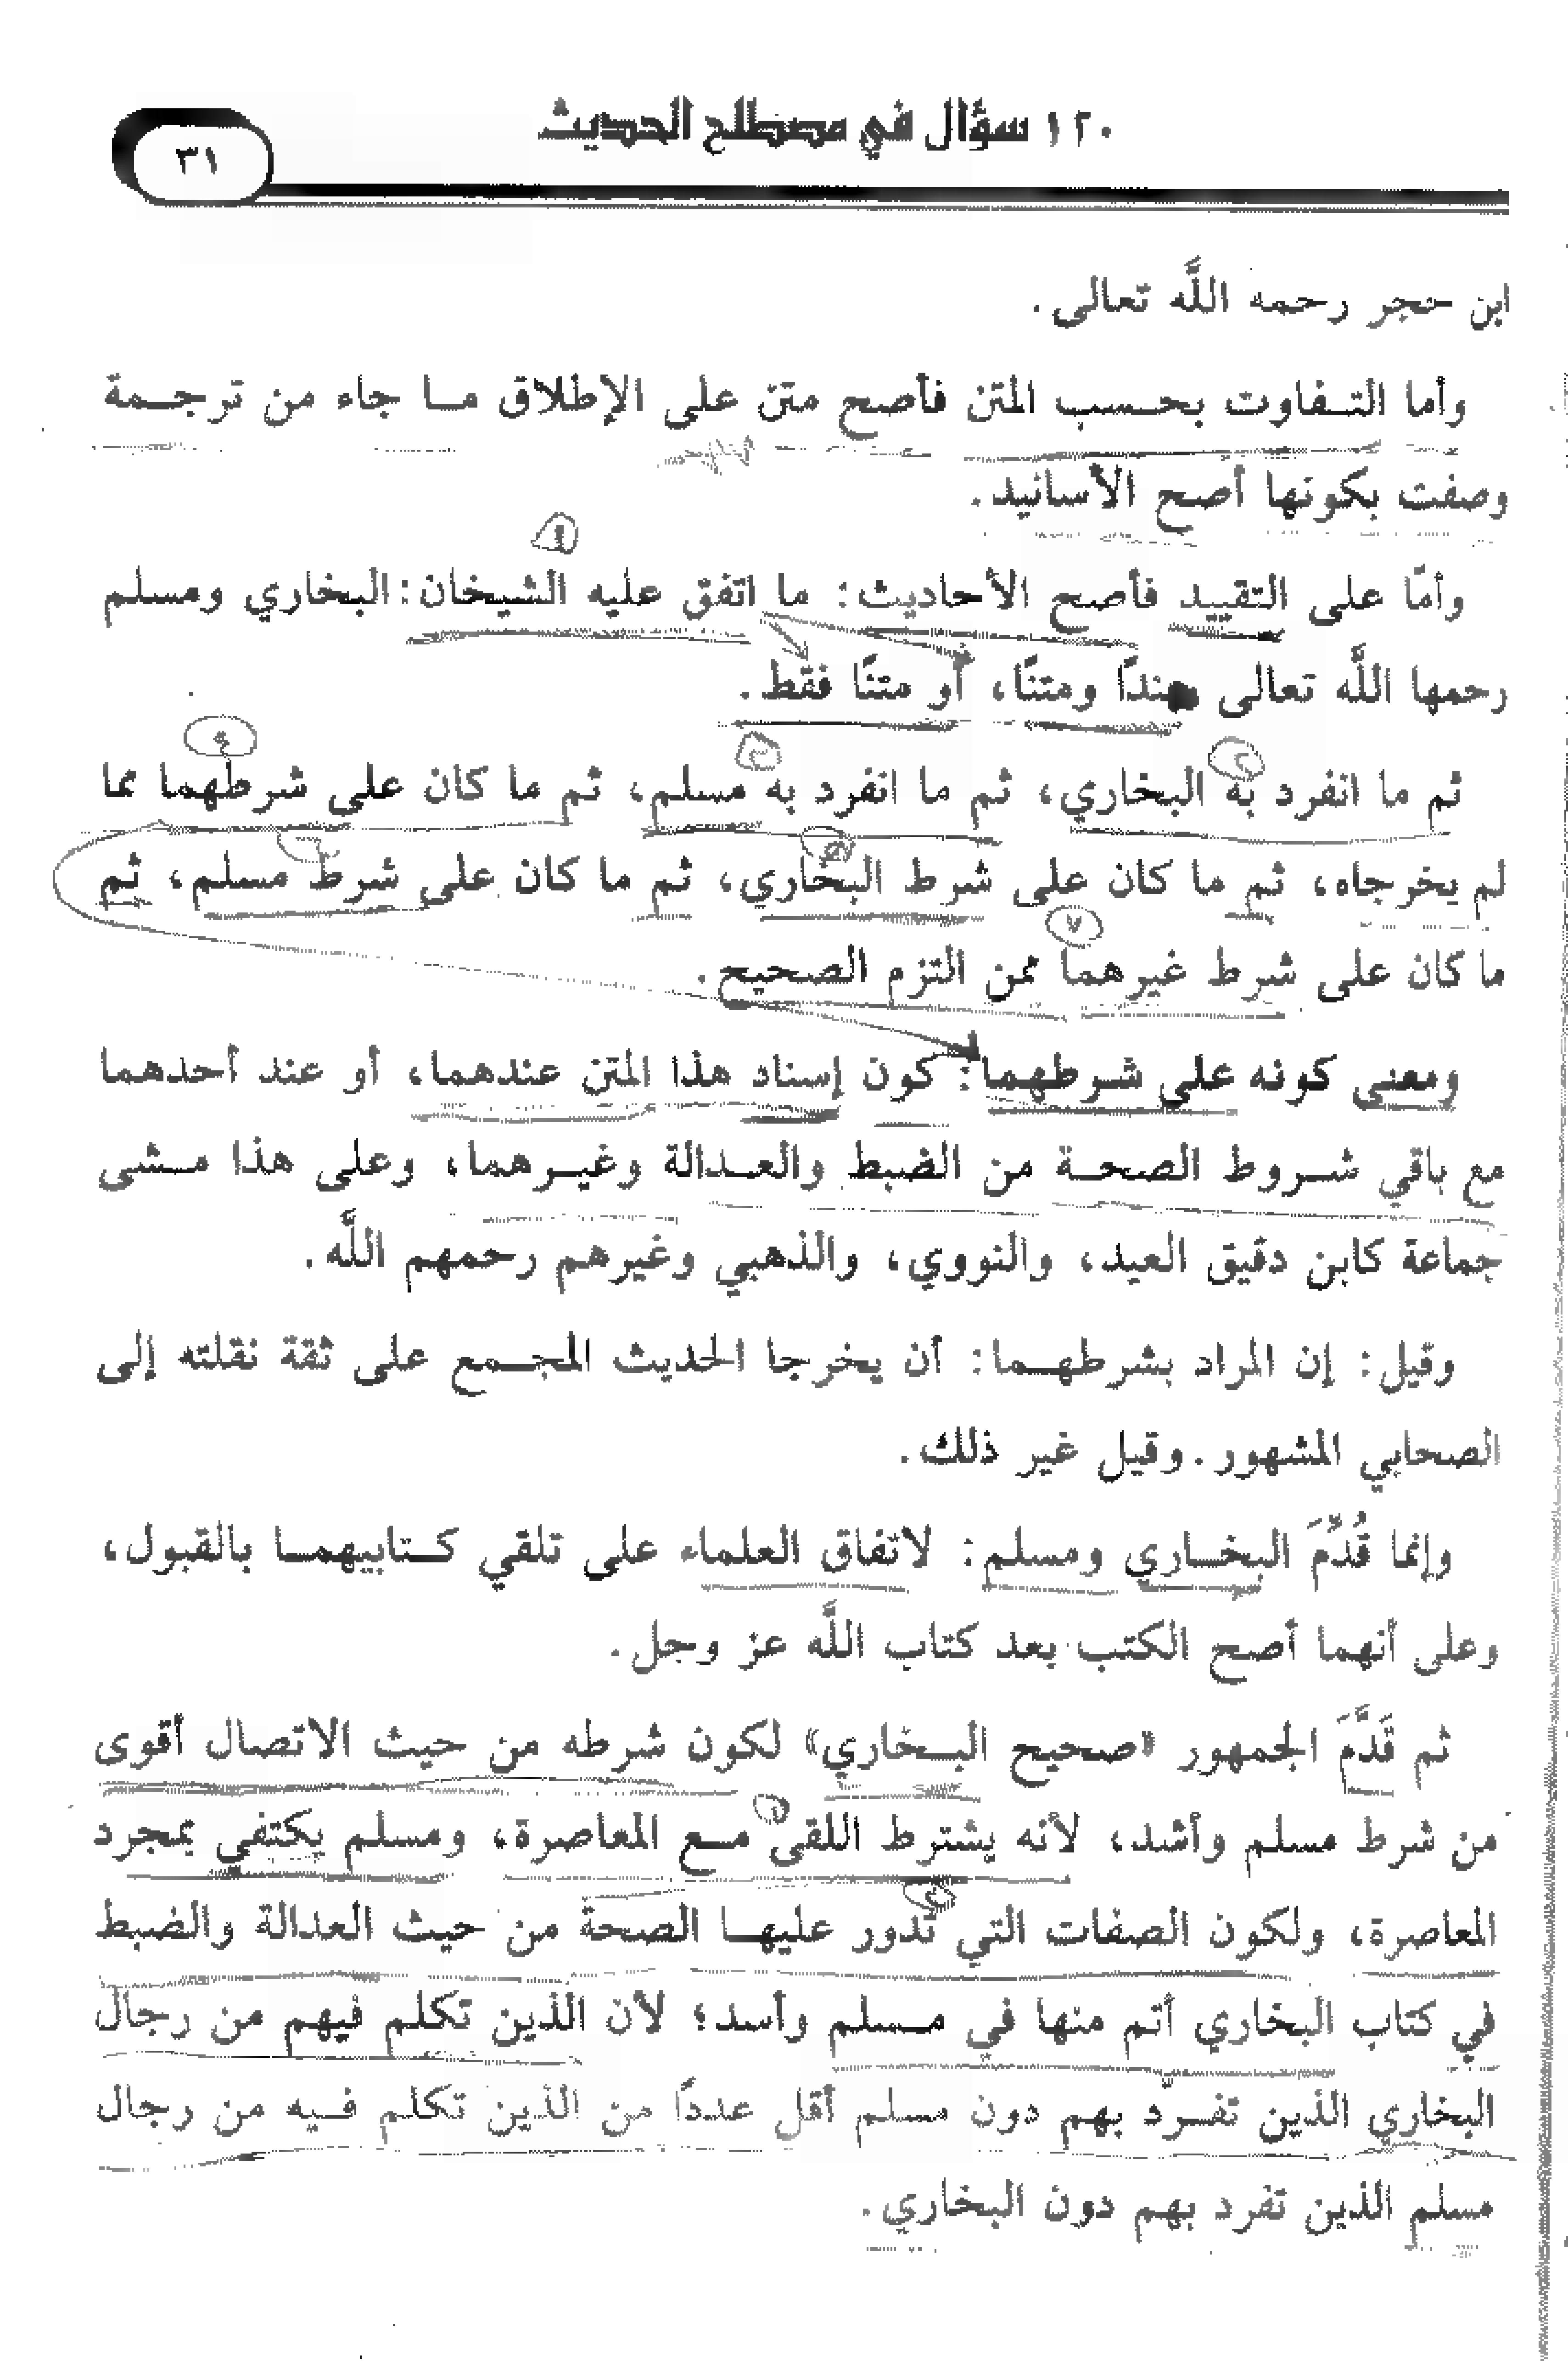 ١٢٠ سؤال في مصطلح الحديث
٣١
ابن حجر رحمه اللَّه تعالى.
وأما التفاوت بحسب المتن فأصح متن على الإطلاق ما جاء من ترجمة
وصفت بكونها أصح الأسانيد.
١
وأمّا على التقييد فأصح الأحاديث: ما اتفق عليه الشيخان: البخاري ومسلم
رحمها اللَّه تعالى سندًا ومتنًا، أو متنًا فقط.
ثم ما انفرد به البخاري، ثم ما انفرد به مسلم، ثم ما كان على شرطهما مما
لم يخرجاه، ثم ما كان على شرط البخاري، ثم ما كان على شرط مسلم، ثم
٧
ما كان على شرط غيرهما ممن التزم الصحيح.
ومعنى كونه على شرطهما: كون إسناد هذا المتن عندهما، أو عند أحدهما
مع باقي شروط الصحة من الضبط والعدالة وغيرهما، وعلى هذا مشى
جماعة كابن دقيق العيد، والنووي، والذهبي وغيرهم رحمهم اللَّه.
وقيل: إن المراد بشرطهما: أن يخرجا الحديث المجمع على ثقة نقلته إلى
الصحابي المشهور. وقيل غير ذلك.
وإنما قُدِّمَ البخاري ومسلم: لاتفاق العلماء على تلقي كتابيهما بالقبول،
وعلى أنهما أصح الكتب بعد كتاب اللَّه عز وجل.
ثم قَدَّمَ الجمهور «صحيح البخاري» لكون شرطه من حيث الاتصال أقوى
من شرط مسلم وأشد، لأنه يشترط اللقى مع المعاصرة، ومسلم يكتفي بمجرد
المعاصرة، ولكون الصفات التي تدور عليها الصحة من حيث العدالة والضبط
في كتاب البخاري أتم منها في مسلم وأسد؛ لأن الذين تكلم فيهم من رجال
البخاري الذين تفرّد بهم دون مسلم أقل عددًا من الذين تكلم فيه من رجال
مسلم الذين تفرد بهم دون البخاري.